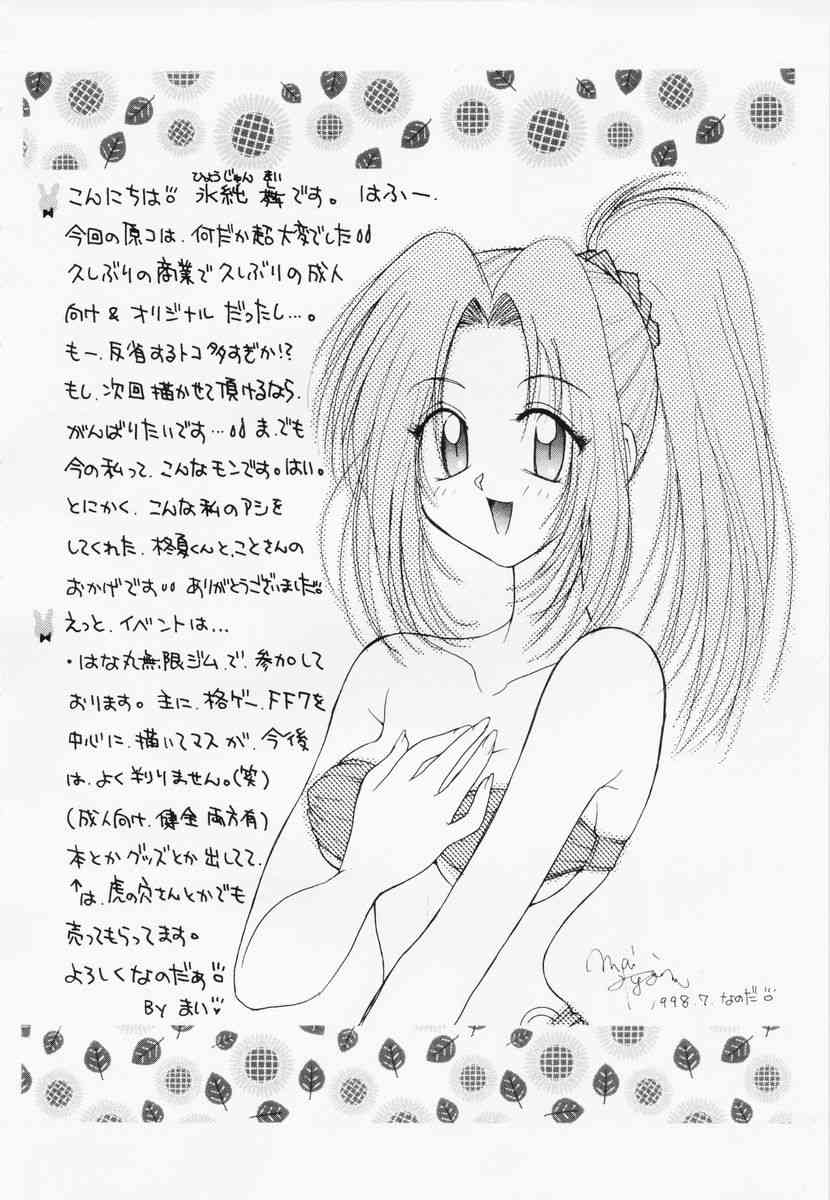 こんにちは 氷純 舞です。 はふー.
ひょうじゅん まい
今回の原コは、何だか超大変でした
久しぶりの商業で久しぶりの成人
向け & オリジナル だったし…。
もー、反省するトコ多すぎか!?
もし、次回描かせて頂けるなら、
がんばりたいです… ま、でも
今の私って、こんなモンです。はい。
とにかく、こんな私のアシを
してくれた、柊夏くんと、ことさんの
おかげです ありがとうございました。
えっと、イベントは…
・はな丸無限ジム で、参加して
おります。主に、格ゲー、FF7を
中心に、描いてマス が、今後
は、よく判りません。(笑)
(成人向け、健全 両方有)
本とか グッズとか 出してて、
↑は、虎の穴さんとかでも
売ってもらってます。
よろしくなのだぁ
By まい
1998.7. なのだ